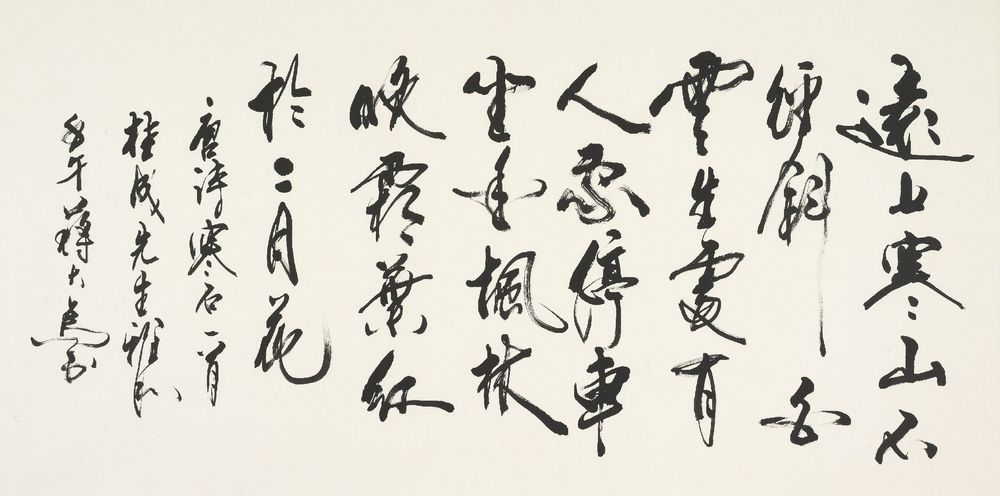 遠上寒山石
徑斜白
雲生處有
人家停車
坐愛楓林
晚霜葉紅
於二月花
唐詩寒石一首
桂成先生雅
午蔣大